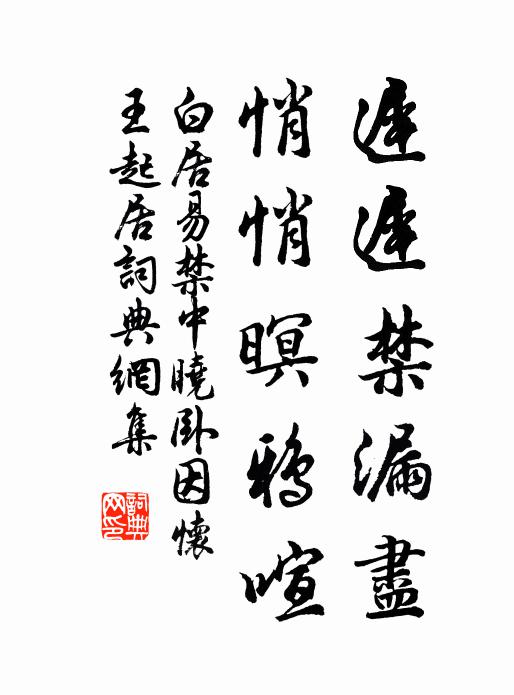 遲遲禁漏盡
悄悄暝鴉喧
白居易禁中曉臥因懷
王起居詞典網集
詞典
网印